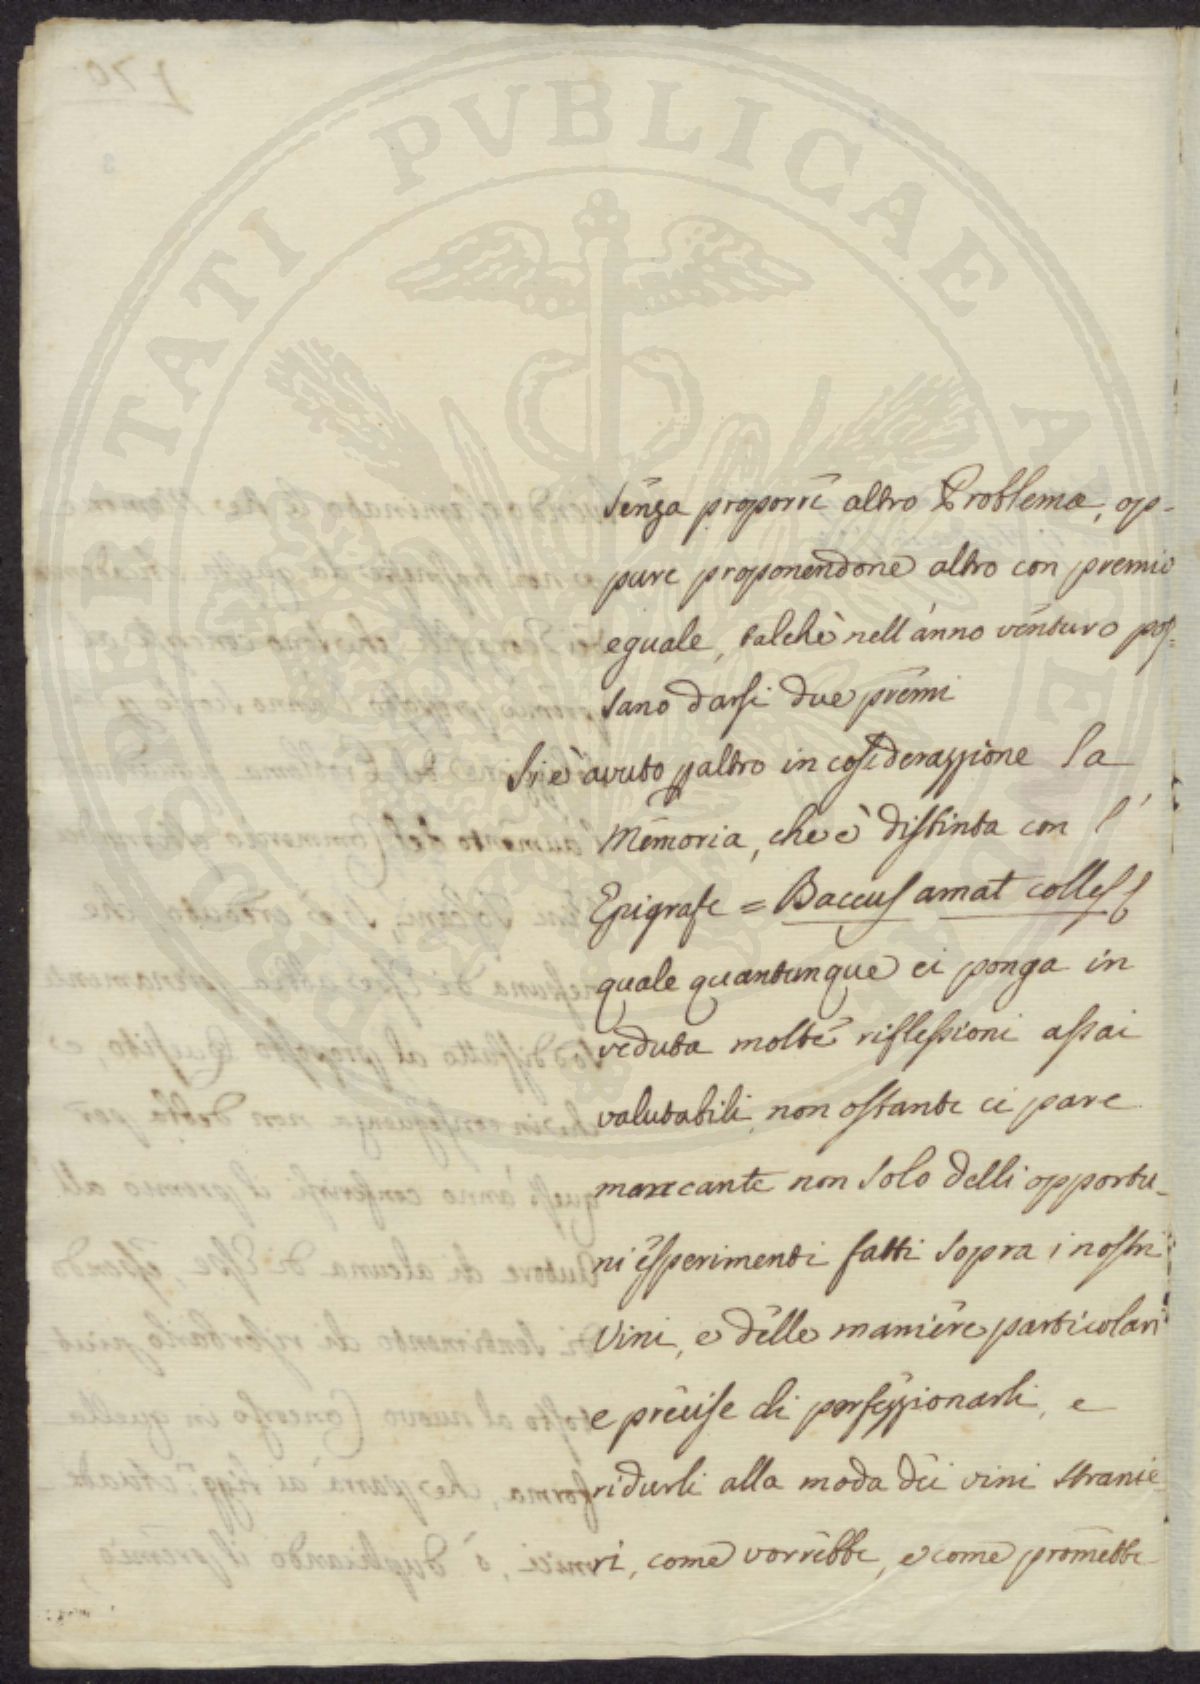 senza proporre altro Problema, op-
pure proponendone altro con premio
eguale, talchè nell'anno venturo pos-
sano darsi due premi
Si è avuto p altro in cosiderazzione la
Memoria, che è distinta con l'
Epigrafe = Baccus amat colles
quale quantunque ci ponga in
veduta molte riflessioni assai
valutabili, non ostante ci pare
mancante non solo delli opportu-
ni esperimenti fatti sopra i nostri
Vini, e delle maniere particolari
e precise di perfezzionarli, e
ridurli alla moda dei vini stranie-
ri, come vorrebbe, e come promette
PERITATI PUBLICAE